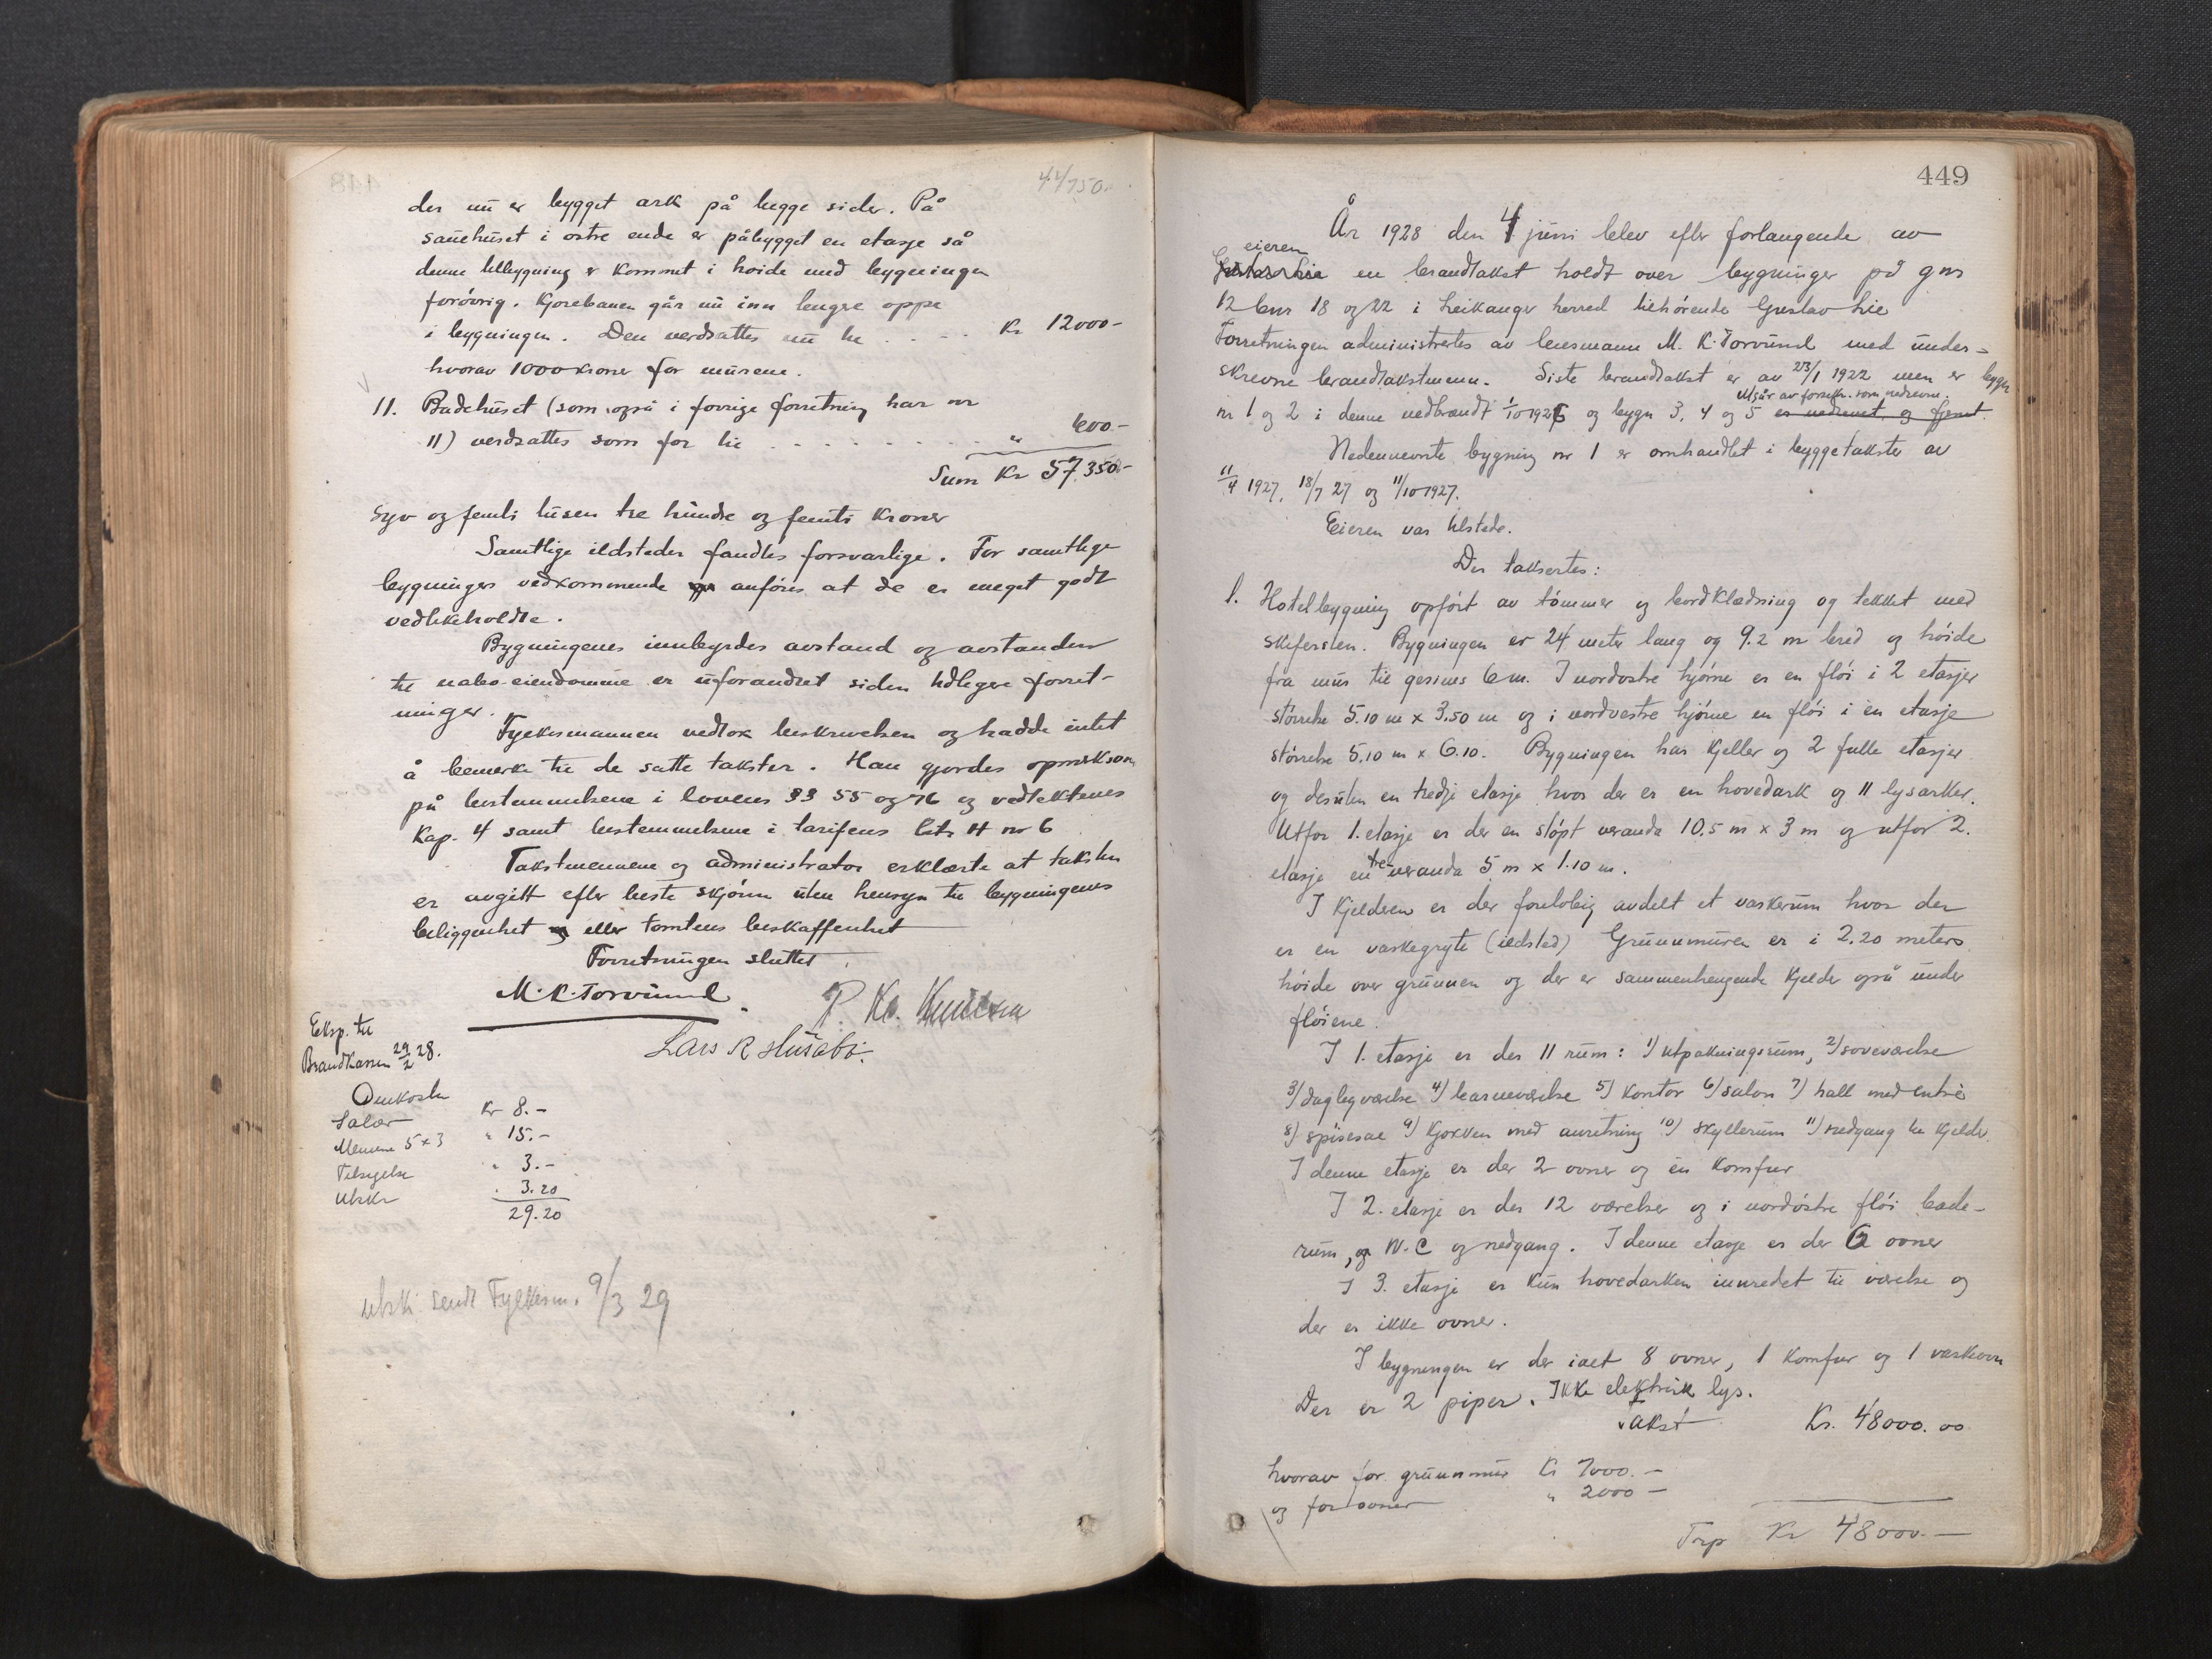 44750.
der nu er bygget ark på begge sider. På
sauehuset i østre ende er påbygget en etasje så
denne tilbygning er kommet i høide med bygningen
forøvrig. Kjørebanen går nu inn lengre oppe
i bygningen. Den verdsattes nu til . . . . Kr 12000-
hvorav 1000 kroner for murene.
11. Badehuset (som også i forrige forretning har nr
11) verdsattes som før til . . . . . . . . . . " 600.-
Sum Kr 57.350.-
Syv og femti tusen tre hundre og femti kroner
Samtlige ildsteder fandtes forsvarlige. For samtlige
bygningers vedkommende anføres at de er meget godt
vedlikeholdte.
Bygningenes innbyrdes avstand og avstanden
til nabo-eiendomme er uforandret siden tidligere forret-
ninger.
Fylkesmannen vedtok beskrivelsen og hadde intet
å bemerke til de satte takster. Han gjordes opmerksom
på bestemmelsene i lovens §§ 55 og 76 og vedtektenes
Kap. 4 samt bestemmelsene i tarifens litr H nr 6
Takstmennene og administrator erklærte at taksten
er avgitt efter beste skjønn uten hensyn til bygningenes
beliggenhet og eller tomtens beskaffenhet
Forretningen sluttet.
M. K. Torvund. P. Kr. Knutsen
Lars R Husabø.
Eksp. til
Brandkassen 29/2 28.
Omkostn
Salær Kr 8.-
Mennene 5x3 " 15.-
Tilsigelse " 3.-
Utskr " 3.20
29.20
utskr. sendt Fylkesm. 9/3 29
449
År 1928 den 4 juni blev efter forlangende av
eieren
Gustav Lie en brandtakst holdt over bygninger på gnr
12 bnr 18 og 22 i Leikanger herred tilhørende Gustav Lie
Forretningen administrertes av lensmann M. K. Torvund med under-
skrevne brandtakstmenn. Siste brandtakst er av 23/1 1922 men er bygn
utgår av forsikr. som nedrevne.
nr 1 og 2 i denne nedbrændt 1/10 1926 og bygn 3, 4 og 5 er nedrevet og fjernet.
Nedennevnte bygning nr 1 er omhandlet i byggetakster av
11/4 1927, 18/7 27 og 11/10 1927.
Eieren var tilstede.
Der taksertes:
1. Hotelbygning opført av tømmer og bordklædning og tekket med
skifersten. Bygningen er 24 meter lang og 9.2 m bred og høide
fra mur til gesims 6 m. I nordostre hjørne er en fløi i 2 etasjer
størrelse 5.10 m x 3.50 m og i nordvestre hjørne en fløi i én etasje
størrelse 5.10 m x 6.10. Bygningen har kjeller og 2 fulle etasjer
og desuten en tredje etasje hvor der er en hovedark og 11 lysarker.
Utfor 1. etasje er der en støpt veranda 10.5 m x 3 m og utfor 2.
etasje en tre-veranda 5 m x 1.10 m.
I kjelderen er der foreløbig avdelt et vaskerum hvor der
er en vaskegryte (ildsted) Grunnmuren er i 2.20 meters
høide over grunnen og der er sammenhengende kjelder også under
fløiene.
I 1. etasje er der 11 rum: 1) utpakningsrum, 2) soveværelse
3) dagligværelse 4) barneværelse 5) kontor 6) salon 7) hall med entré
8) spisesal 9) kjøkken med anretning 10) skyllerum 11) nedgang til kjelder.
I denne etasje er der 2 ovner og én komfur
I 2. etasje er der 12 værelser og i nordøstre fløi bade-
rum, og W.C og nedgang. I denne etasje er der 6 ovner
I 3. etasje er kun hovedarken innredet til værelse og
der er ikke ovner.
I bygningen er der ialt 8 ovner, 1 komfur og 1 vaskeovn
Der er 2 piper. Ikke elektrisk lys.
Takst Kr. 48000.00
hvorav for grunnmur Kr 7000.-
og for ovner " 2000-
Trsp Kr 48000.-